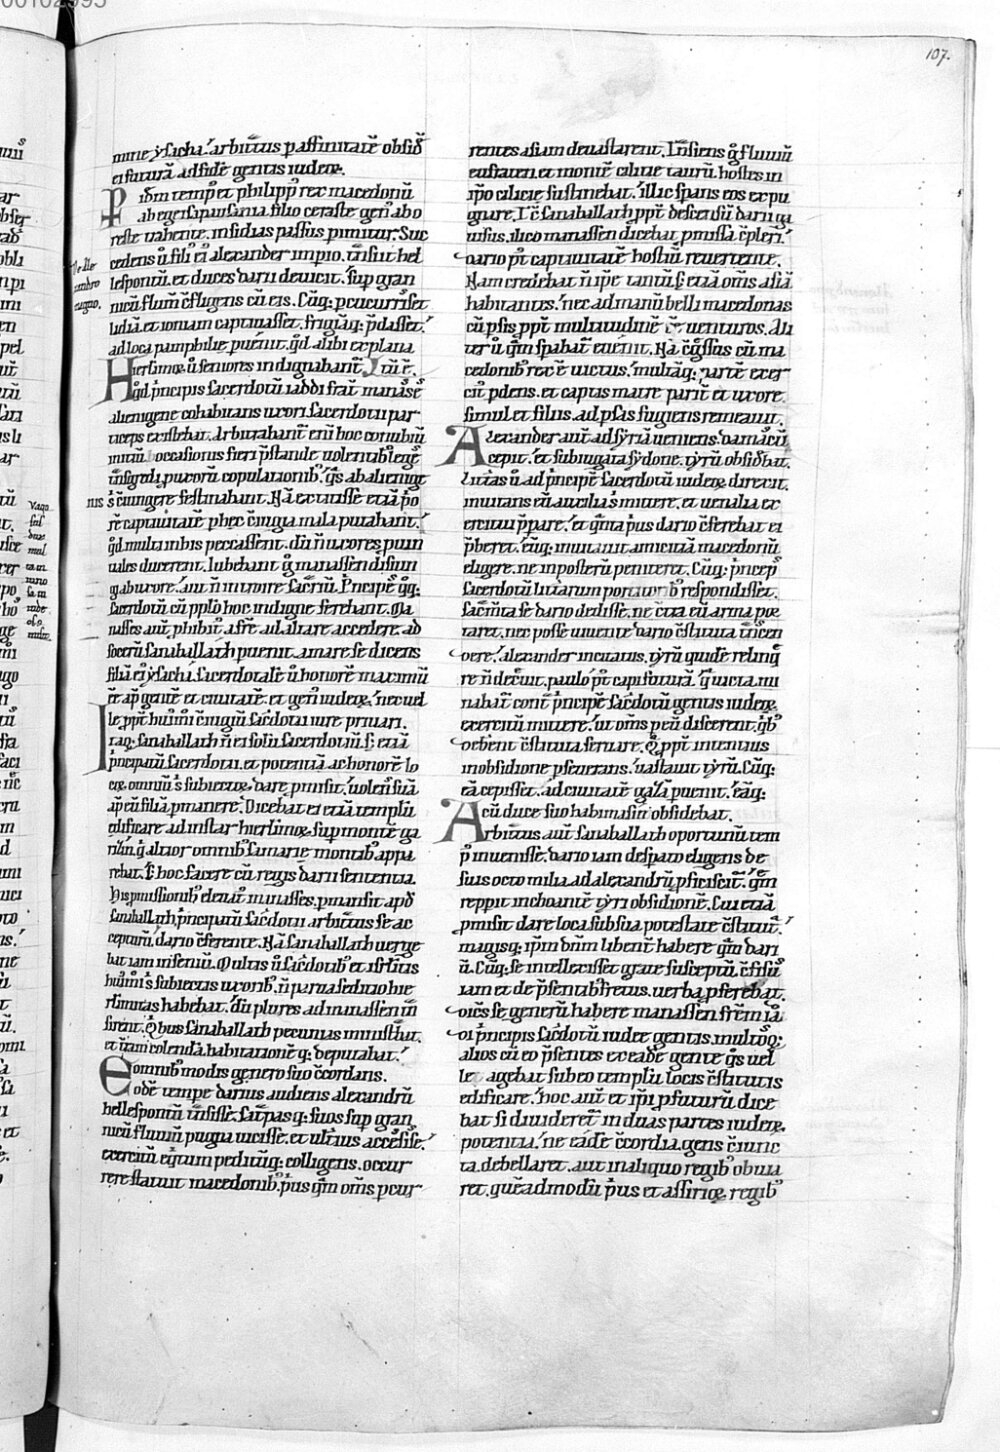 107.
mine ysacha. arbitt̄us p affinitatē obsid̄
ei futurā ad fidē gentis iudeoꝝ.
Pid̄m temp' et philipp' rex macedonū
ab egeis a pausania filio ceraste gen̄ ab o
reste trahente. insidias passus pimitur. Suc
cedens ū fili' ei' alexander impio. t̄nsiit hel
lespontū. et duces darii deuicit. sup gran
nicū fluuiū c̄fligens cū eis. Cūq; pcucurrisset
lidiā. et ioniam captiuasset. frigiāq; p̄dasset.
ad loca pamphilie puenit. qd̄ alibi explana
tū ē.
Hierlimoꝝ ū seniores indignabant̄
qd̄ p̄ncipis sacerdotū iaddi frat̄ manasse
alienigene cohabitans uxori sacerdotii par
ticeps existebat. Arbitrabant̄ enī hoc coniubiū
initiū occasionis fieri p̄stande uolentib' legē
t̄nsgredi. puꝝorū copulationib'. q̄s ab alienige
nis s̄ c̄iungere festinabant. Nā extitisse etiā p̄o
rē captiuitatē p hec c̄iugia mala putabant.
qd̄ multi in his peccassent. dū n̄ uxores puin
tiales ducerent. Iubebant g̊ manassen disiun
gi ab uxore. aut n̄ introire sac̄riū. P̄ncipe q̄q;
sacerdotū cū pplo hoc indigne ferebant. Ma
nasses aut̄ phibit' a fr̄e ad altare accedere. ad
socerū sanaballath puenit. amare se dicens
filiā ei' ysachā. sacerdotale ū honorē maximū
ēē ap̄ gentē et ciuitatē. et gen' iudeoꝝ. nec uel
le ppt̄ hui'mi c̄iugiū sac̄dotii iure priuari.
Itaq; sanaballath n̄ ei solū sacerdotiū. s; etiā
p̄ncipatū sacerdotii. et potentiā ac honorē lo
coꝝ omniū s̄ subiectoꝝ. dare pmisit. uolens suā
ap̄ eū filiā pmanere. Dicebat ei etiā templū
edificare ad instar hierlimoꝝ sup montē ga
rizin. q̄ altior omnib' samarie montib' appa
rebat. & hoc facere cū regis darii sententia.
His pmissionib' eleuat' manasses. pmansit apd̄
sanaballath. p̄ncipatū sac̄dotii arbitt̄us se ac
cepturū. dario c̄ferente. Nā sanaballath uerge
bat iam in seniū. Multis ū sac̄dotib' et isrlitis
hui'mi s̄ subiectis uxorib'. n̄ parua seditio hie
rlimitas habebat. dū plures ad manassen t̄n
sirent. Q̄bus sanaballath pecunias ministrabat.
et t̄ram colendā. habitationēq; deputabat.
omnib' modis genero suo c̄cordans.
Eodē tempe darius audiens alexandrū
hellespontū t̄nsisse. sat̄pasq; suos sup gran
nicū fluuiū pugna uicisse. et ult̄ius accessisse.
exercitū equitum peditūq; colligens. occur
rere statuit macedonib'. p̄us qm̄ om̄s pcur
rentes asiam deuastarent. T̄nsiens g̊ fluuiū
eufraten. et montē cilitie taurū. hostes in
ip̄o cilicie sustinebat. illic spans eos expu
gnare. Tc̄ sanaballath ppt̄ descensū darii ga
uisus. ilico manassen dicebat pmissa c̄pleri.
dario p̄t captiuitatē hostiū reuertente.
Nam credebat n̄ ip̄e tantū s; etiā om̄s asiā
habitantes. nec ad manū belli macedonas
cū psis ppt̄ multitudinē ēē uenturos. Ali
ter ū qm̄ spabat̄ euenit. Nā c̄gssus cū ma
cedonib' rex ē uictus. multāq; partē exer
cit' pdens. et captis matre pariter et uxore
simul et filiis. ad psas fugiens remeauit.
Alexander aut̄ ad syriā ueniens. damascū
cepit. et subiugata sydone. tyrū obsidebat.
litt̄as ū ad p̄ncipē sacerdotū iudeoꝝ direxit.
inuitans eū auxilia s̄ mittere. et uenalia ex
ercitui p̄pare. et q̄nta p̄us dario c̄ferebat ei
p̄beret. eūq; inuitauit amicitiā macedonū
eligere. ne in posterū peniteret. Cūq; p̄nceps
sacerdotū litt̄arum portitorib' respondisset.
sac̄m̄ta se dario dedisse. ne c̄tra eū arma por
taret. nec posse uiuente dario c̄stituta t̄nscen
dere. alexander incitatus. tyrū quidē relinq̄
re n̄ decreuit. paulo p̄t capi futurā. qua uicta. mi
nabat̄ cont̄ p̄ncipē sac̄dotū gentis iudeoꝝ
exercitū mittere. ut om̄s p eū discerent. q̄b'
debent c̄stituta seruare. Q̄ppt̄ intentius
in obsidione pseuerans. uastauit tyrū. Cūq;
eā cepisset. ad ciuitatē gazā puenit. eāq;
cū duce suo habimasin obsidebat.
Arbitt̄us aut̄ sanaballath oportunū tem
p' inuenisse. dario iam despato eligens de
suis octo milia. ad alexandrū pficiscit̄. qm̄
reppit inchoante tyri obsidionē. Cui etiā
pmisit dare loca sub sua potestate c̄stituta.
magisq; ip̄m dn̄m libent̄ habere qm̄ dari
ū. Cūq; se intellexisset grate susceptū. c̄fisus
iam et de p̄sentib' fretus. uerba pferebat.
dicēs se generū habere manassen fr̄em iad
di p̄ncipis sac̄dotū iudee gentis. multosq;
alios cū eo p̄sentes ex eadē gente q̄s uel
le agebat sub eo templū locis c̄stitutis
edificare. hoc aut̄ et ip̄i pfuturū dice
bat si diuideret̄ in duas partes iudeoꝝ
potentia. ne eadē c̄cordia. gens c̄iunc
ta debellaret. aut in aliquo regib' obuia
ret. quēadmodū p̄us et assirioꝝ regib'